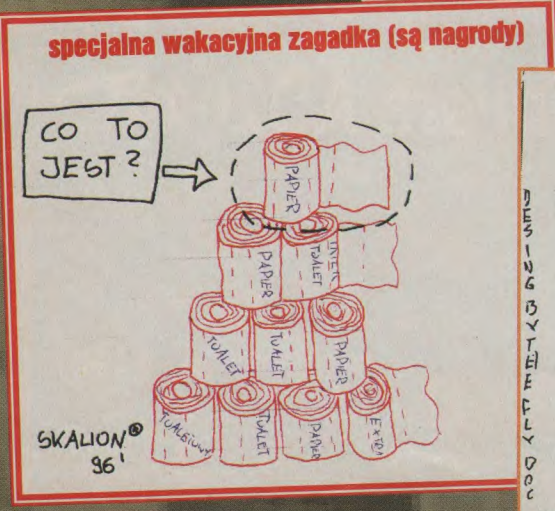 specjalna wakacyjna zagadka (są nagrody)
CO TO
JEST?
PAPIER
PAPIER
TOALET
TOALET
TOALET
PAPIER
TOALETOWY
TOALET
PAPIER
EXTRA
SKALION®
96'